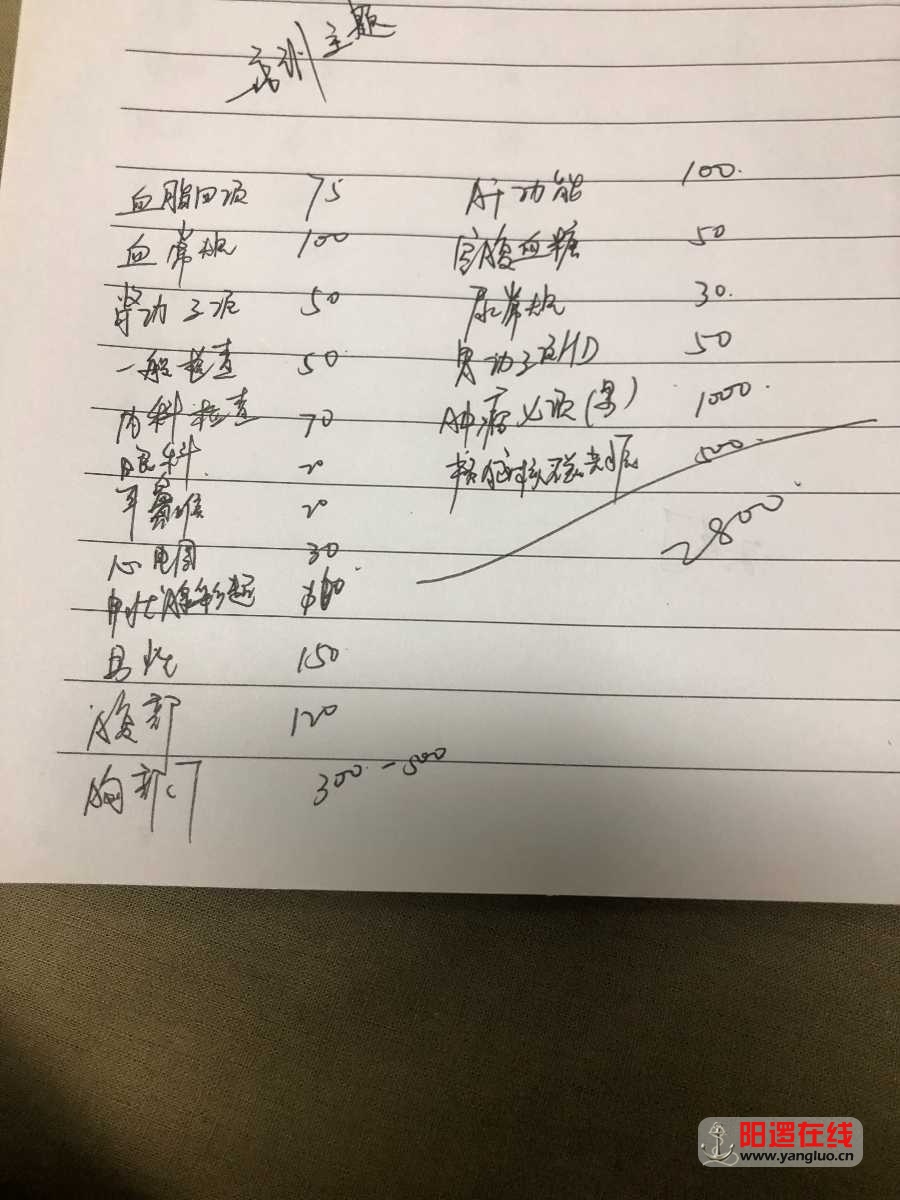 培训主题
血脂四项 75
血常规 100
肾功三项 50
一般检查 50
内科检查 70
眼科 20
耳鼻喉 20
心电图 30
甲状腺彩超
150
腹部 120
胸部CT 300-500
肝功能 100.
空腹血糖 50
尿常规 30.
功三项HD 50
肿瘤 项(男) 1000.
500.
2800.
阳逻在线
www.yangluo.cn